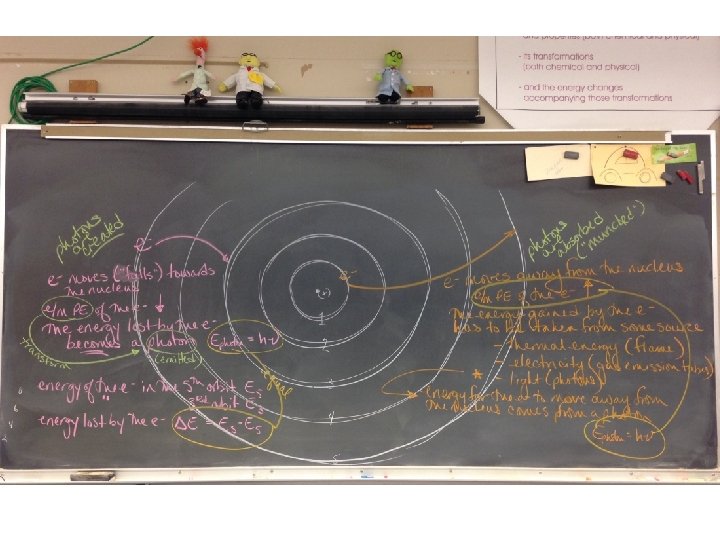 and properties (both chemical and physical)
- its transformations
(both chemical and physical)
- and the energy changes
accompanying those transformations
photons
are
created
e-
e- moves ("falls") towards
the nucleus
e/m PE of the e- ↓
The energy lost by the e-
becomes a photon
(emitted)
transform
Ephoton = hν
equal
energy of the e- in the 5th orbit E5
" 3rd orbit E3
energy lost by the e- ΔE = E5 - E3
(+)
e-
1
2
3
4
5
photons
are
absorbed
("munched")
e- moves away from the nucleus
e/m PE of the e- ↑
The energy gained by the e-
has to be taken from some source
- thermal energy (flame)
- electricity (gas emission tubes)
* - light (photons)
energy for the e- to move away from
the nucleus comes from a photon
Ephoton = hν